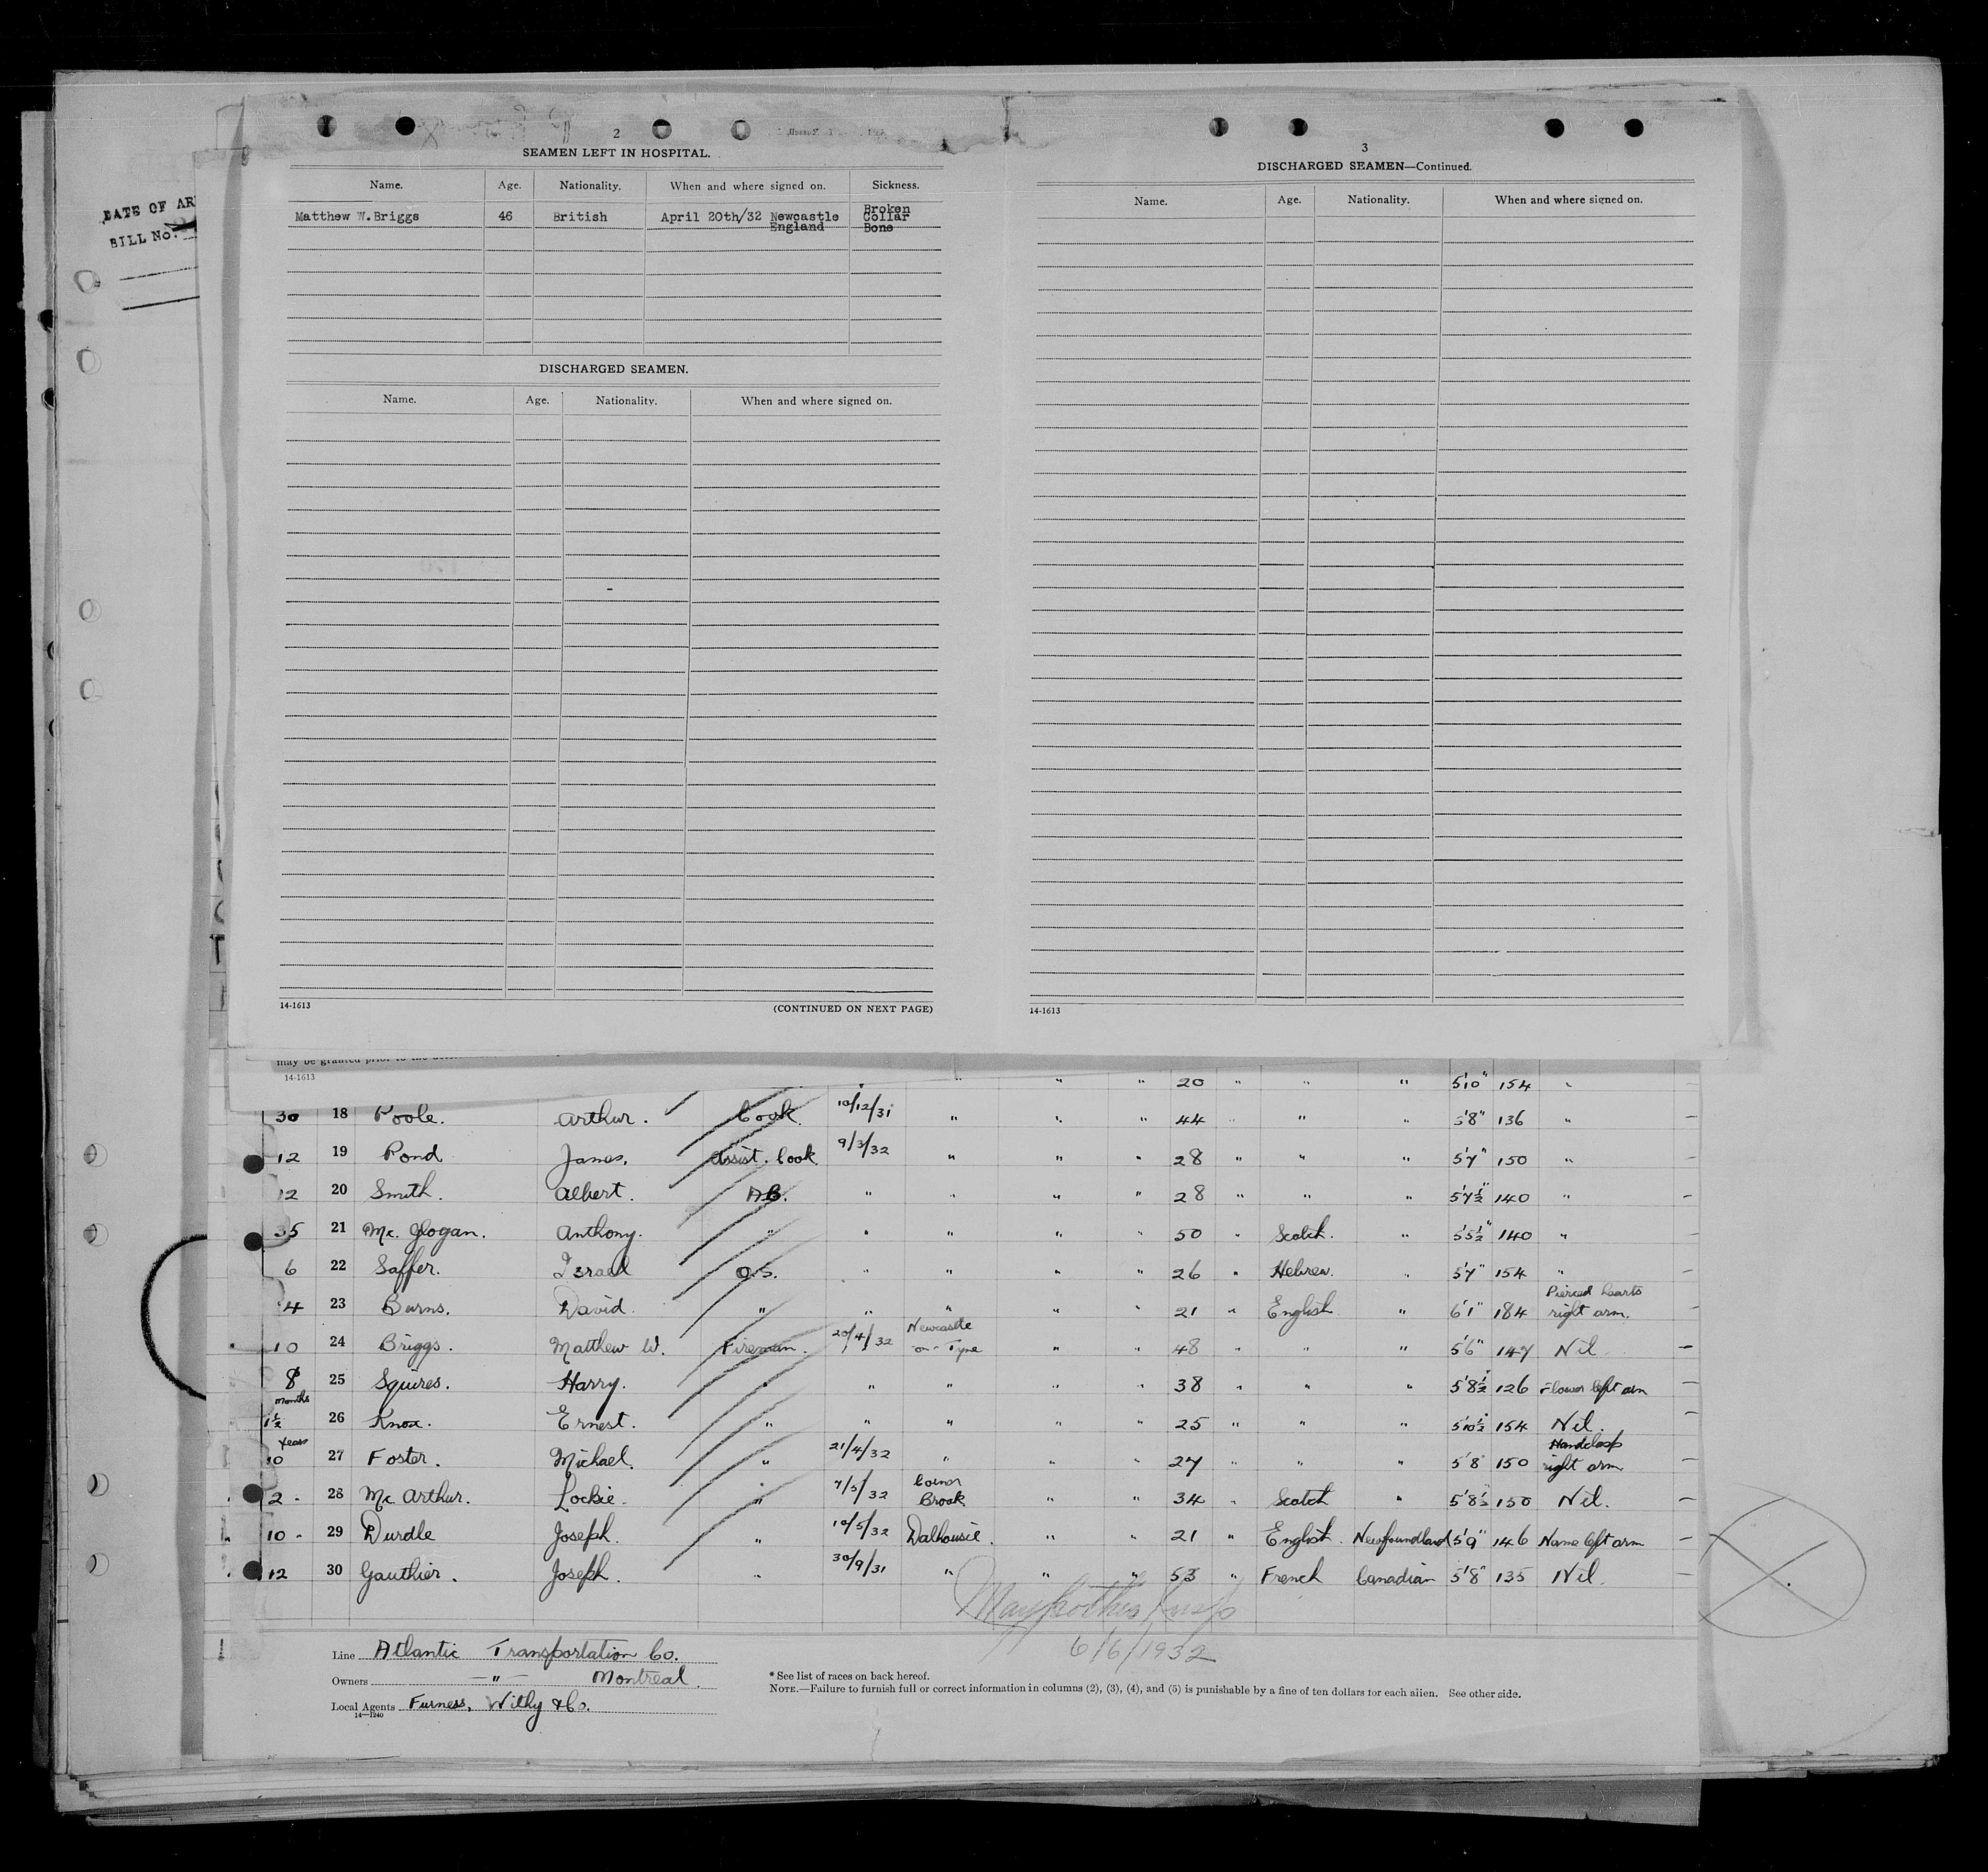 DATE OF AR
BILL No.
2
SEAMEN LEFT IN HOSPITAL.
Name. Age. Nationality. When and where signed on. Sickness.
Matthew W.Briggs 46 British April 20th/32 Newcastle England Broken Collar Bone
DISCHARGED SEAMEN.
Name. Age. Nationality. When and where signed on.
14-1613 (CONTINUED ON NEXT PAGE)
3
DISCHARGED SEAMEN—Continued.
Name. Age. Nationality. When and where signed on.
14-1613
may be granted prior to the
14-1613
" " " 20 " " " 5'10" 154 "
30 18 Poole. Arthur. Cook. 10/12/31 " " " 44 " " " 5'8" 136 "
12 19 Pond James. Assist. Cook. 9/3/32 " " " 28 " " " 5'7" 150 "
12 20 Smith. Albert. A.B. " " " " 28 " " " 5'7½" 140 "
35 21 Mc. Glogan. Anthony. " " " " " 50 " Scotch. " 5'5½" 140 "
6 22 Saffer. Israel O.S. " " " " 26 " Hebrew. " 5'7" 154 "
4 23 Burns. David. " " " " " 21 " English " 6'1" 184 Pierced hearts right arm.
10 24 Briggs. Matthew W. Fireman. 20/4/32 Newcastle -on-Tyne " " 48 " " " 5'6" 147 Nil
8 months 25 Squires. Harry. " " " " " 38 " " " 5'8½" 126 Flower left arm
1½ years 26 Knox. Ernest. " " " " " 25 " " " 5'10½" 154 Nil.
10 27 Foster. Michael. " 21/4/32 " " " 27 " " " 5'8" 150 Handclasp right arm
2 - 28 Mc Arthur. Lockie. " 7/5/32 Corner Brook " " 34 " Scotch " 5'8½ 150 Nil.
10 - 29 Durdle Joseph. " 10/5/32 Dalhousie. " " 21 " English. Newfoundland 5'9" 146 Name left arm
12 30 Gauthier. Joseph. " 30/9/31 " " " 53 " French Canadian 5'8" 135 Nil.
6/6/1932
Line Atlantic Transportation Co.
Owners —"— Montreal.
Local Agents Furness, Withy & Co.
14—1240
* See list of races on back hereof.
NOTE.—Failure to furnish full or correct information in columns (2), (3), (4), and (5) is punishable by a fine of ten dollars for each alien. See other side.